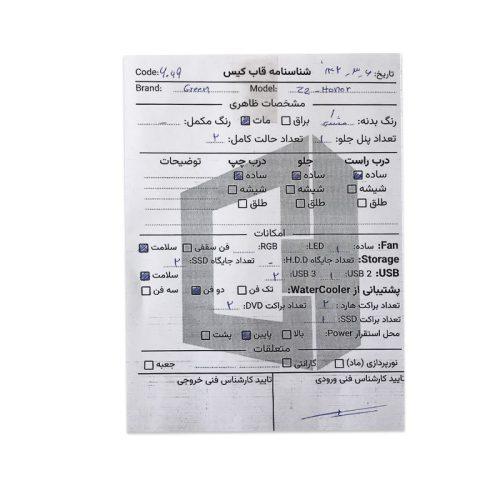 تاریخ: ۱۴۰۲-۳-۶ شناسنامه قاب کیس Code:
Brand: Green Model: Z8 - Honor
مشخصات ظاهری
رنگ بدنه: مشکی براق مات رنگ مکمل: -
تعداد پنل جلو: ۱ تعداد حالت کامل: ۲
درب راست جلو درب چپ توضیحات
ساده ساده ساده
شیشه شیشه شیشه
طلق طلق طلق
امکانات
Fan: ساده: ۱ LED: RGB: فن سقفی سلامت
Storage: تعداد جایگاه H.D.D: - تعداد جایگاه SSD: ۲
USB: USB 2: ۱ USB 3: ۲ سلامت
پشتیبانی از WaterCooler: تک فن دو فن سه فن
تعداد براکت هارد: ۲ تعداد براکت DVD: ۲
تعداد براکت SSD: ۱
محل استقرار Power: بالا پایین پشت
متعلقات
نورپردازی (ماد) گارانتی جعبه
تایید کارشناس فنی ورودی تایید کارشناس فنی خروجی